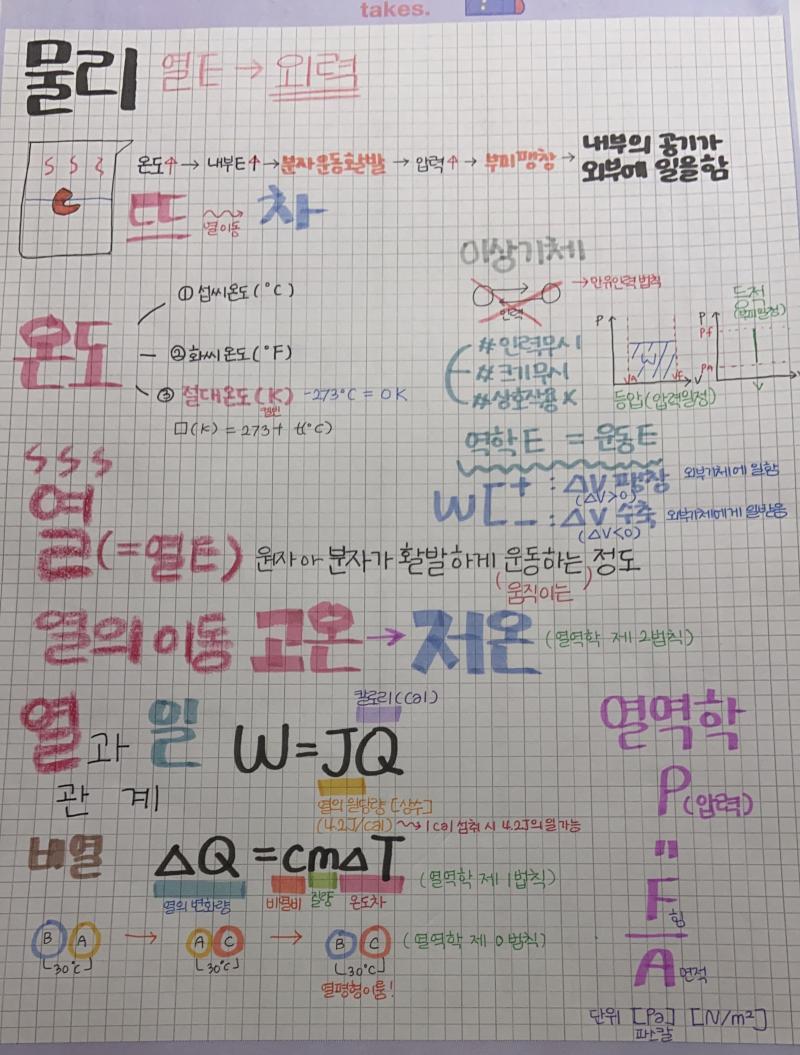 takes.
물리 열E → 외력
온도↑ → 내부E↑ → 분자운동활발 → 압력↑ → 부피팽창 → 내부의 공기가
외부에 일을함
뜨 열이동 차
온도
① 섭씨온도(°C)
② 화씨온도(°F)
③ 절대온도(K) -273°C = 0K
켈빈
□(K) = 273 + t(°C)
이상기체
인력 → 만유인력법칙
#인력무시
#크기무시
#상호작용 X
P W VA VF V
등압(압력일정)
등적
(부피일정)
P Pf PA V
역학E = 운동E
W[+ : ΔV 팽창 외부기체에 일함
(ΔV>0)
- : ΔV 수축 외부기체에게 일받음
(ΔV<0)
열(=열E) 원자아 분자가 활발하게 운동하는 정도
(움직이는)
열의 이동 고온 → 저온 (열역학 제 2법칙)
열과 일
관 계
칼로리(cal)
W = JQ
열의 일당량 [상수]
(4.2J/cal) 1cal 섭취 시 4.2J의 일 가능
비열 ΔQ = cmΔT (열역학 제 1법칙)
열의 변화량 비열비 질량 온도차
B A → A C → B C (열역학 제 0법칙)
30°C 30°C 30°C
열평형이룸!
열역학
P(압력)
=
F 힘
A 면적
단위 [Pa] [N/m²]
파스칼